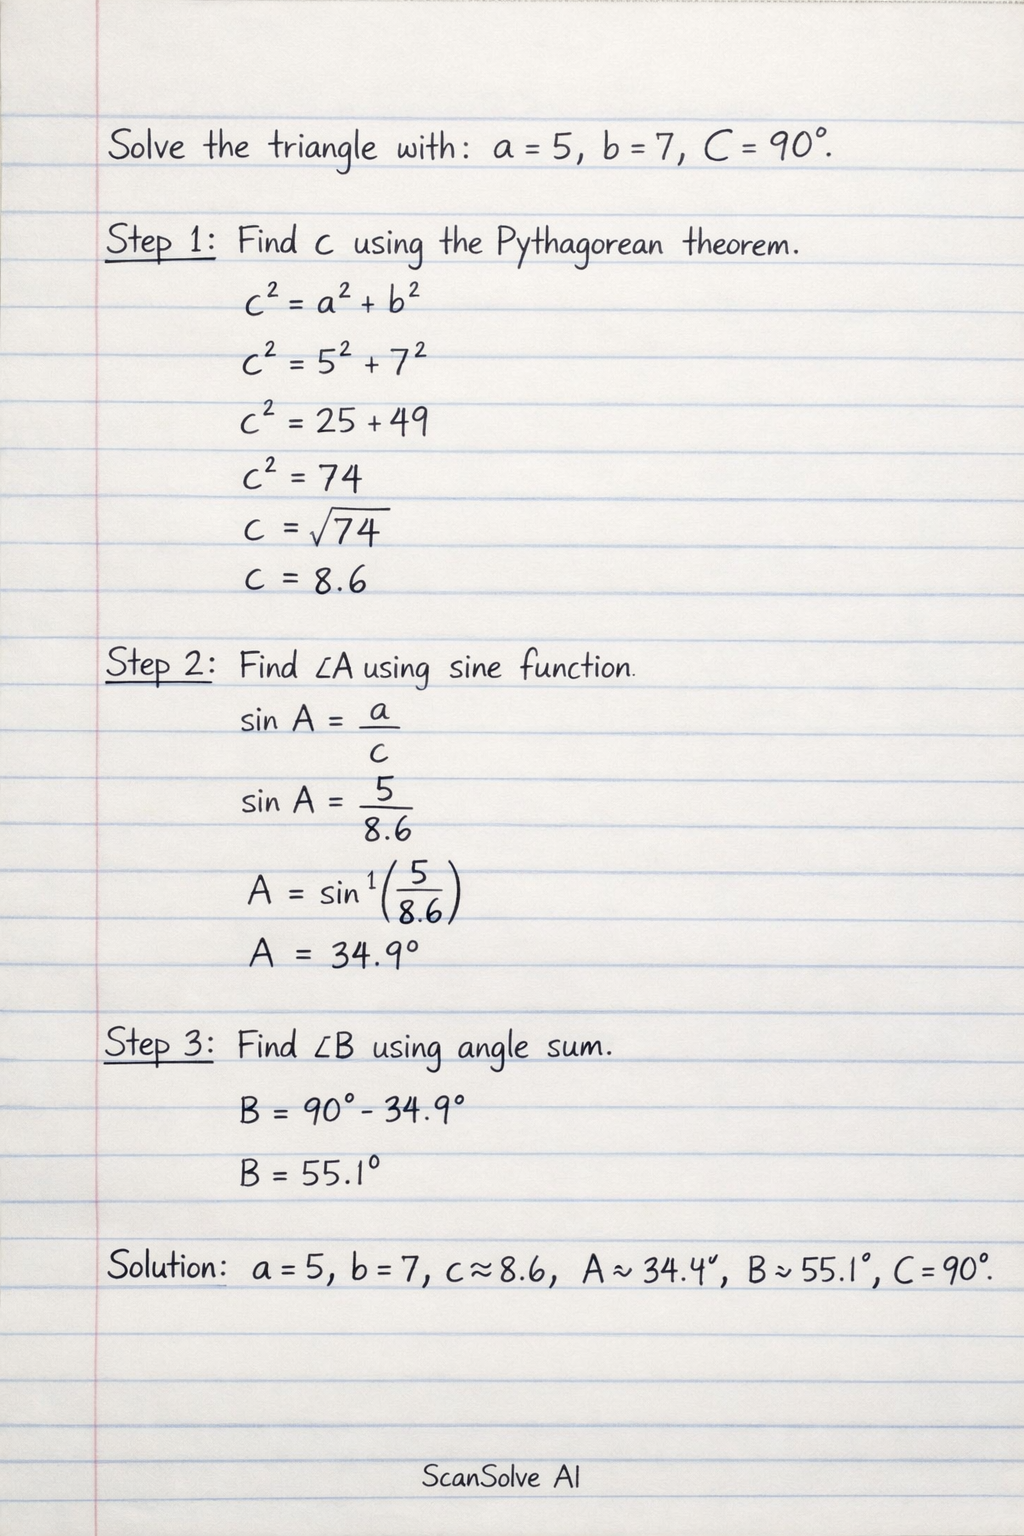 Solve the triangle with: a = 5, b = 7, C = 90°.
Step 1: Find c using the Pythagorean theorem.
c² = a² + b²
c² = 5² + 7²
c² = 25 + 49
c² = 74
c = √74
c = 8.6
Step 2: Find ∠A using sine function.
sin A = a/c
sin A = 5/8.6
A = sin¹(5/8.6)
A = 34.9°
Step 3: Find ∠B using angle sum.
B = 90° - 34.9°
B = 55.1°
Solution: a = 5, b = 7, c ≈ 8.6, A ≈ 34.4°, B ≈ 55.1°, C = 90°.
ScanSolve AI